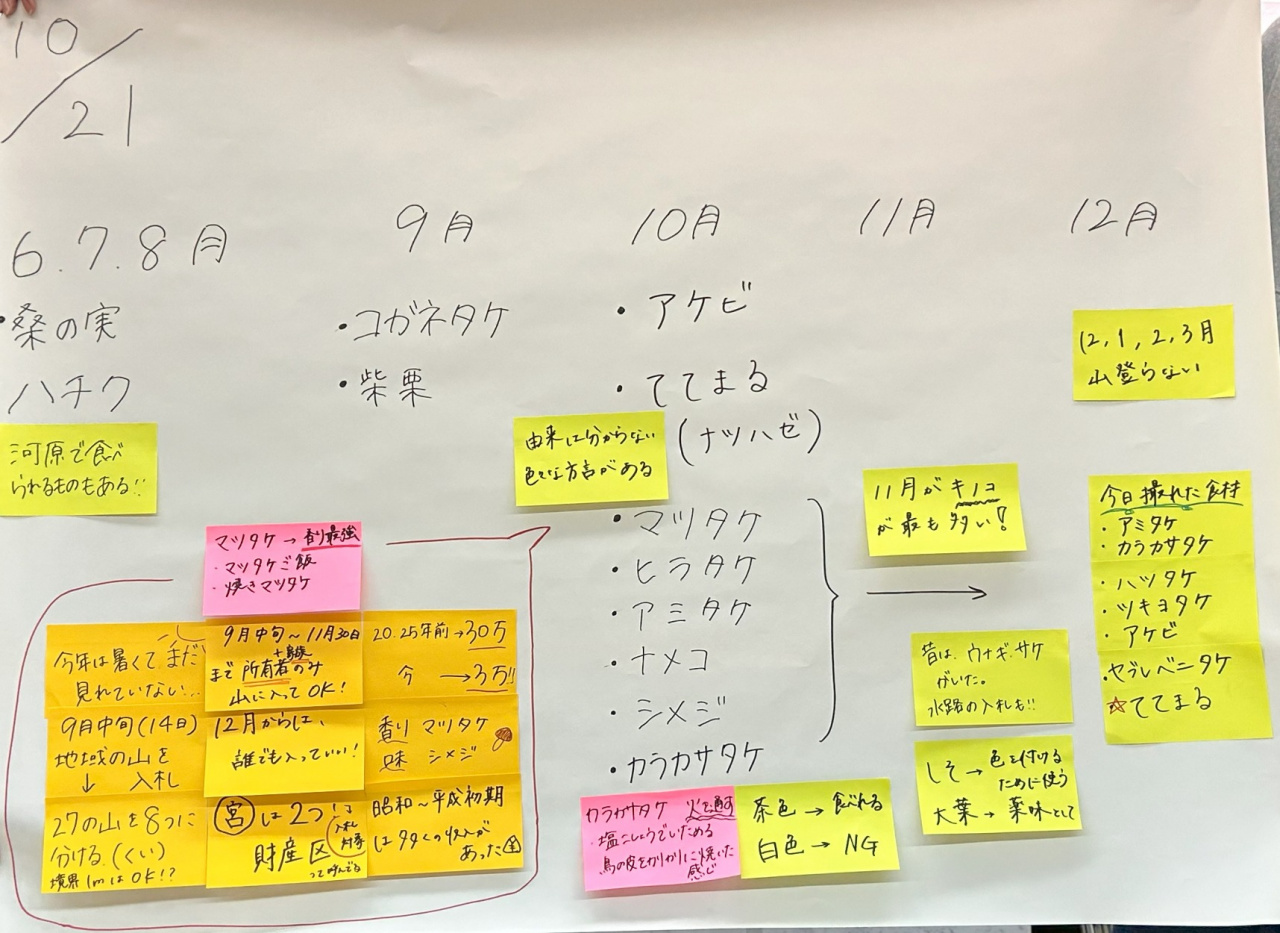 10/21
6.7.8月
・桑の実
ハチク
河原で食べ
られるものもある!!
9月
・コガネタケ
・柴栗
10月
・アケビ
・ててまる
(ナツハゼ)
由来は分からない
色々な方言がある
・マツタケ
・ヒラタケ
・アミタケ
・ナメコ
・シメジ
・カラカサタケ
カラカサタケ 火を通す
・塩こしょうでいためる
鳥の皮をカリカリに焼いた
感じ
茶色→食べれる
白色→NG
11月
11月がキノコ
が最も多い!
昔は、ウナギ、サケ
がいた。
水路の入札も!!
しそ→色を付ける
ために使う
大葉→薬味として
12月
12,1,2,3月
山登らない
今日撮れた食材
・アミタケ
・カラカサタケ
・ハツタケ
・ツキヨタケ
・アケビ
・ヤブレベニタケ
☆ててまる
マツタケ→香り最強
・マツタケご飯
・焼きマツタケ
今年は暑くてまだ
見れていない...
9月中旬〜11月30日
まで所有者のみ
山に入ってOK!
20.25年前→30万
今→3万!!
9月中旬(14日)
地域の山を
↓ 入札
12月からは、
誰でも入っていい!
香り マツタケ
味 シメジ
27の山を8つに
分ける。(くい)
境界1mはOK!?
宮は2つ
入札
対象
財産区
って呼んでる
昭和〜平成初期
は多くの収入が
あった 金